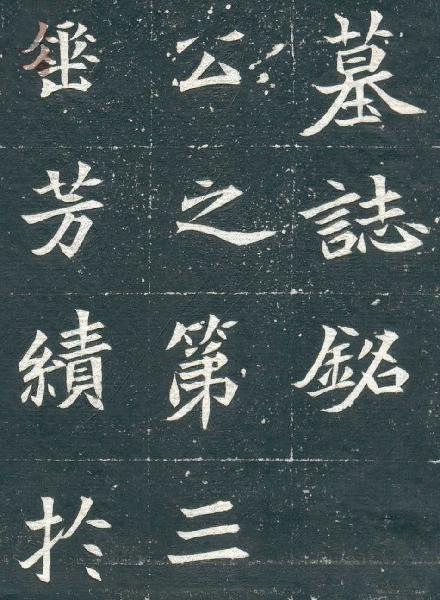 墓誌銘
公之第三
垂芳績於